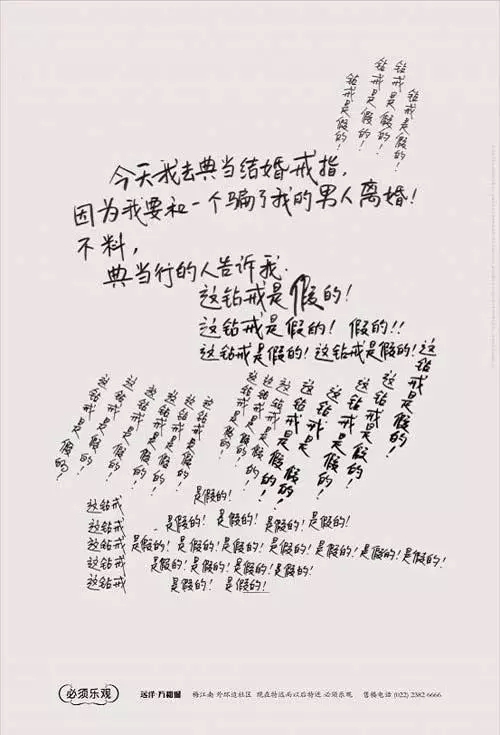 钻戒是假的!
钻戒是假的!
钻戒是假的!
钻戒是假的!
今天我去典当结婚戒指,
因为我要和一个骗了我的男人离婚!
不料,
典当行的人告诉我.
这钻戒是假的!
这钻戒是假的! 假的!!
这钻戒是假的!这钻戒是假的!这钻戒是假的!
这钻戒是假的!
这钻戒是假的!
这钻戒是假的!
这钻戒是假的!
这钻戒是假的!
这钻戒是假的!
这钻戒是假的!
这钻戒是假的!
这钻戒是假的!
这钻戒是假的!
这钻戒是假的!
这钻戒是假的!
是假的!
这钻戒
这钻戒 是假的! 是假的!是假的!是假的!
这钻戒 是假的!是假的!是假的!是假的!是假的!是假的!是假的!
这钻戒 是假的!是假的!是假的!是假的!
这钻戒 是假的! 是假的!
必须乐观 远洋·万和城 梅江南 外环边社区 现在特远而以后特近 必须乐观 售楼电话 (022) 2382 6666